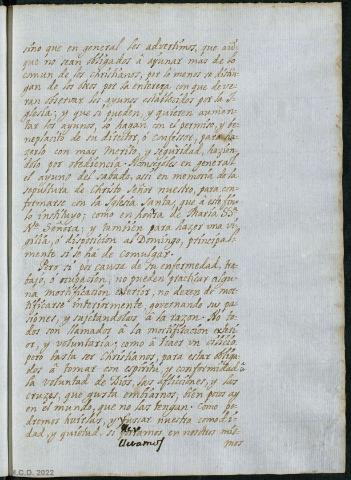 sino que en general les advertimos, que aũ-
que no sean obligados à ayunar mas de lo
comun de los Christianos; por lo menos se distin-
gan de los otros por la entereza con que deve-
ran observar los ayunos establecidos por la I-
glesia; y que si pueden, y quieren aumen-
tar los ayunos, lo hagan con el permiso, y be-
neplacito de su director, ò Confessor, para ha-
zerlo con mas merito, y seguridad, hazien-
dolo por obediencia. en general
el ayuno del sabado, assi en memoria de la
sepultura de Christo Señor nuestro, para con-
firmarse con la Iglesia Santa, que à este fin
lo instituyo; como en honra de Maria SSª
Nrª Señora; y tambien para hazer una vi-
gilia, ò disposicion al Domingo, principal-
mente si se ha de comulgar.
Pero si por causa de su enfermedad, tra-
bajo, ò ocupacion, no pueden practicar algu-
na mortificacion exterior, no dexen de mor-
tificarse interiormente, governando sus pa-
siones, y sujetandolas à la razon. No to-
dos son llamados à la mortificacion exteri-
or, y voluntaria; como à traer un cilicio,
pero basta ser Christianos, para estar obliga-
dos à tomar con espiritu, y conformidad à
la voluntad de Dios, las aflicciones, y las
cruzes, que gusta embiarnos; bien pocos ay
en el mundo, que no las tengan. Como po-
dremos huirlas, y buscar nuestra comodi-
dad y quietud, si miramos en nosotros mis-
mos
llevamos
C.D. 2022